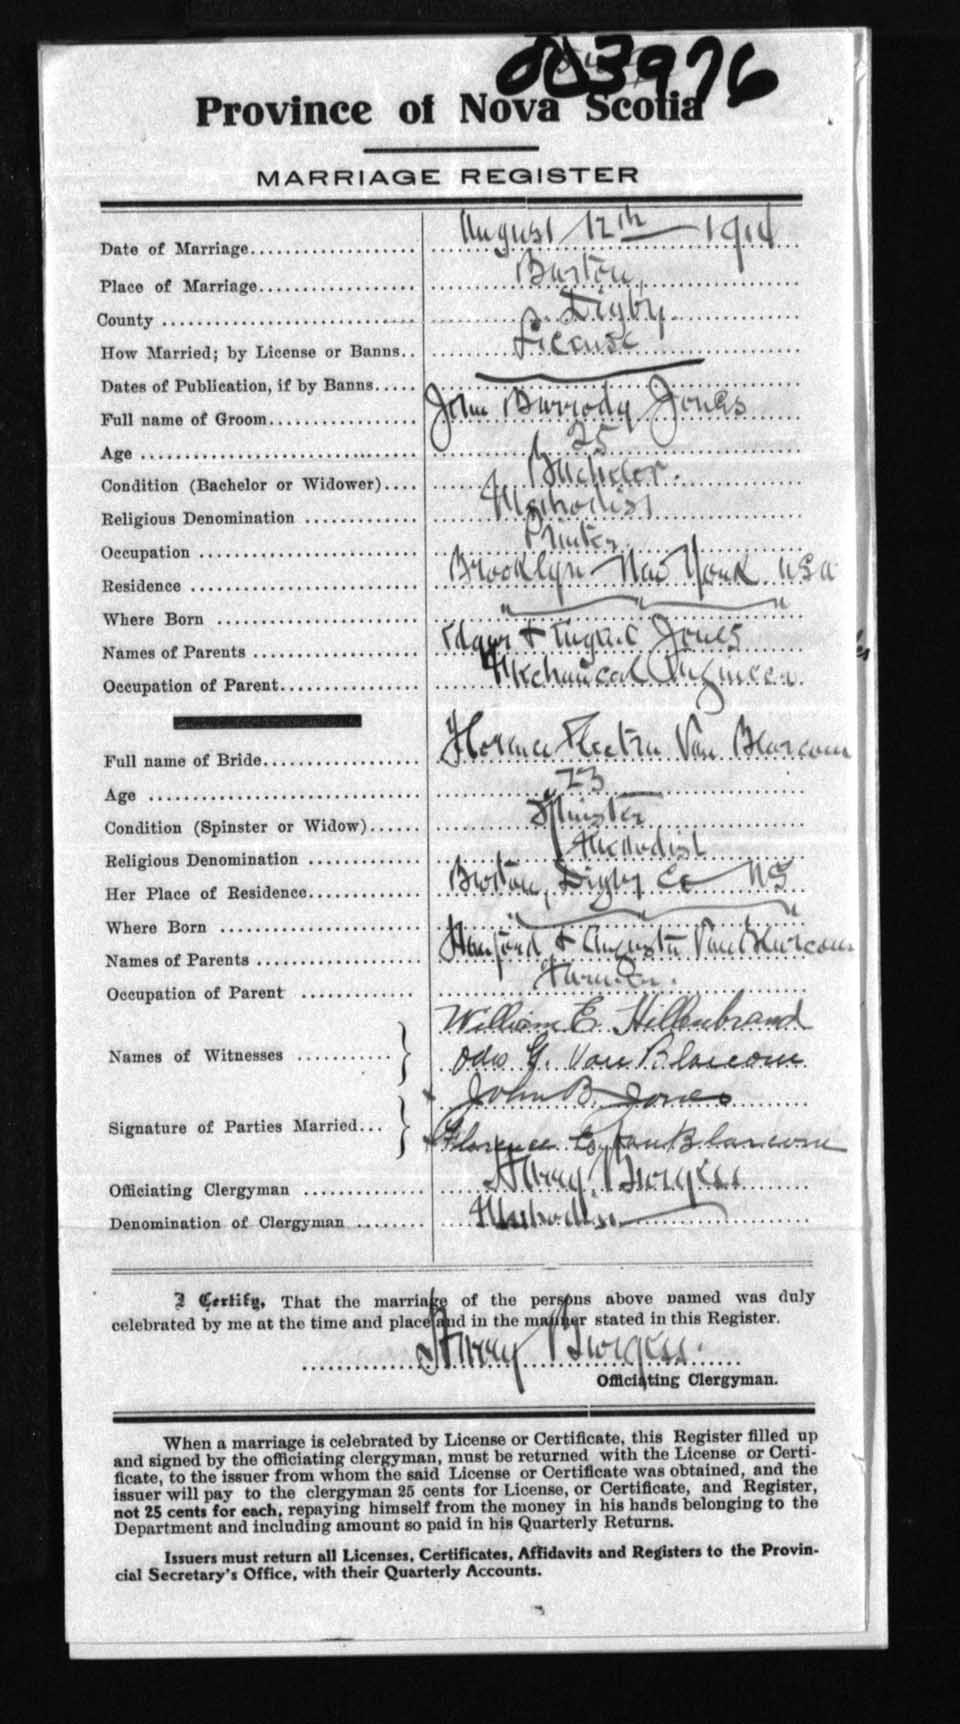 003976
Province of Nova Scotia
MARRIAGE REGISTER
Date of Marriage August 12th 1914
Place of Marriage Barton
County Digby
How Married; by License or Banns License
Dates of Publication, if by Banns
Full name of Groom John Jones
Age 25
Condition (Bachelor or Widower) Bachelor.
Religious Denomination Methodist
Occupation Printer
Residence Brooklyn New York USA
Where Born " " "
Names of Parents Edgar & Jones
Occupation of Parent Mechanical Engineer
Full name of Bride Florence Electra Van Blarcom
Age 23
Condition (Spinster or Widow) Spinster
Religious Denomination Methodist
Her Place of Residence Barton, Digby Co NS
Where Born " " "
Names of Parents Hanford & Augusta Van Blarcom
Occupation of Parent Farmer.
Names of Witnesses William E. Hillenbrand
G. Van Blarcom
Signature of Parties Married John B. Jones
Florence E. Van Blarcom
Officiating Clergyman Harry Burgess
Denomination of Clergyman Methodist
I Certify, That the marriage of the persons above named was duly
celebrated by me at the time and place and in the manner stated in this Register.
Harry Burgess.
Officiating Clergyman.
When a marriage is celebrated by License or Certificate, this Register filled up
and signed by the officiating clergyman, must be returned with the License or Certi-
ficate, to the issuer from whom the said License or Certificate was obtained, and the
issuer will pay to the clergyman 25 cents for License, or Certificate, and Register,
not 25 cents for each, repaying himself from the money in his hands belonging to the
Department and including amount so paid in his Quarterly Returns.
Issuers must return all Licenses, Certificates, Affidavits and Registers to the Provin-
cial Secretary's Office, with their Quarterly Accounts.